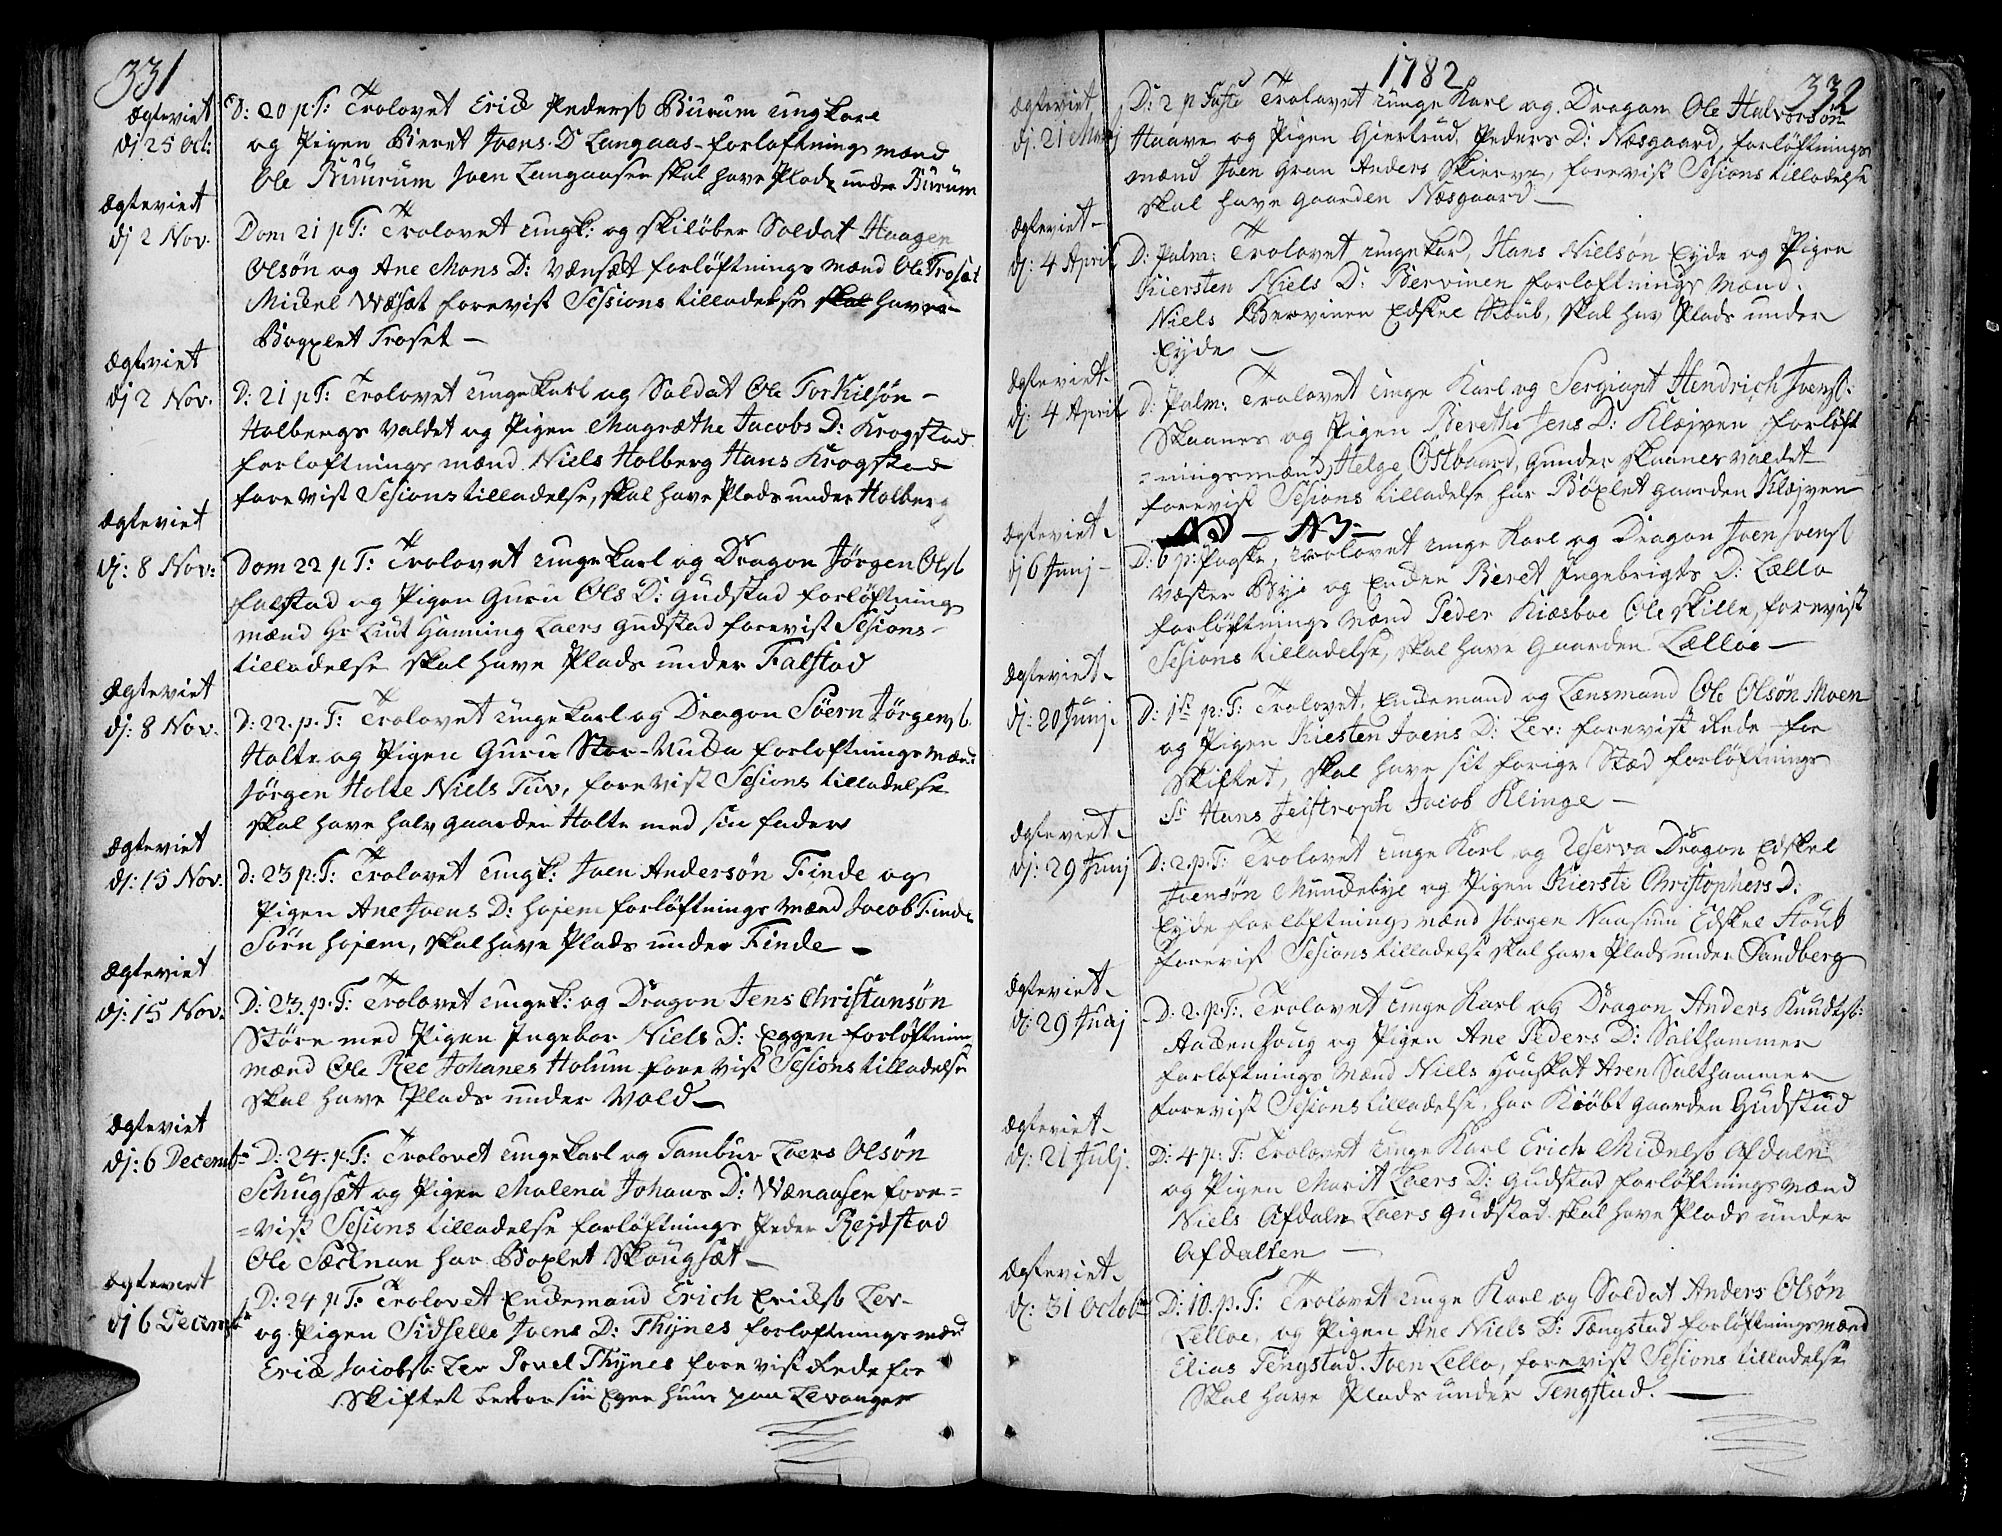 331
Ægteviet
dj 25 Oct:
D: 20 p.T: Trolovet Erick Pedersb Burum ungkarl
og Pigen Beret Joens D Langaas forløftnings mænd
Ole Buurum Joen Langaasen skal have Plads under Burum
Ægteviet
dj 2 Nov.
Dom 21 p T: Trolovet ungk: og skiløber Soldat Haagen
Olsøn og Ane Mons D: Vænsæt forløftnings mænd Ole Troset
Mickel Wæsæt forevist Sessions tilladelse skal have
Bøgxlet Troset —
Ægteviet
dj 2 Nov.
D: 21 p T: Trolovet ungekarl og Soldat Ole Torkilsøn
Holbergs valdet og Pigen Magræthe Jacobs D: Krogstad
forløftnings mænd Niels Holberg Hans Krogstad
forevist Sesions tilladelse, skal have Plads under Holberg
Ægteviet
dj: 8 Nov:
Dom 22 p T: Trolovet ungekarl og Dragon Jørgen Olsb
falstad og Pigen Guru Ols D: Gudstad forløftnings
mænd Hr Liut Hanning Laers Gudstad forevist Sesions
tilladelse skal have Plads under Falstad
Ægteviet
dj: 8 Nov.
D: 22. p. T: Trolovet ungekarl og Dragon Søern Jørgensb
Holte og Pigen Guru Stor-Vucka forløftnings mænd
Jørgen Holte Niels Tuv, forevist Sesions tilladelse
skal have halv gaarden Holte med sin fader
Ægteviet
dj: 15 Nov.
D: 23 p: T: Trolovet ungk: Joen Andersøn Finde og
Pigen Ane Joens D: Hojem forløftnings mænd Jacob Finde
Sørn Hojem, skal have Plads under Finde —
Ægteviet
dj: 15 Nov.
D: 23. p. T: Trolovet ungek: og Dragon Jens Christansøn
Større med Pigen Ingebor Niels D: Eggen forløftnings
mænd Ole Ree Johanes Holum forevist Sesions tilladelse
skal have Plads under Vold —
Ægteviet
dj: 6 Decembr
D: 24. p. T: Trolovet ungekarl og Tambur Laers Olsøn
Schugsæt og Pigen Malena Johans D: Wænaasen fore=
=vist Sesions tilladelse forløftnings Peder Rejdstad
Ole Sæcknan har Bøxlet Skougsæt —
Ægteviet
dj 6 Decembr
D: 24 p T: Trolovet Enckemand Erich Ericksb Lev-
og Pigen Sidselle Joens D: Thynes forløftnings mænd
Erick Jacobsb Lev Povel Thynes forevist Rede for
Skiftet beboer sin Egen huus paa Levanger
1782
332
Ægteviet
dj 21 Martj
D: 2 p Faste Trolovet unge Karl og Dragon Ole Halvorsøn
Haave og Pigen Giertrud Peders D: Næsgaard, forløftnings
mænd Joen Gran Anders Skierve, forevist Sesions tilladelse
skal have gaarden Næsgaard —
Ægteviet
dj: 4 April
D: Palm: Trolovet ungekarl Hans Nielsøn Eyde og Pigen
Kiersten Niels D: Bervinen forløftnings mænd.
Niels Bervinen Edskel Stoub, skal hav Plads under
Eyde —
Ægteviet
dj: 4 April
D: Palm: Trolovet unge Karl og Sergiant Hendrich Joensb:
Skaanes og Pigen Berethe Jens D: Klejven, forløft
=ningsmænd Helge Østbaard, Gunder Skaanes valdet
forevist Sesions tilladelse har Bøxlet gaarden Klejven
— NB —
Ægteviet
dj 6 Junj
D: 6 p: Paaske, Trolovet unge Karl og Dragon Joen Joensb
Væster Bye og Encken Beret Ingebrigts D: Lælloe
forløftnings mænd Peder Kiæsboe Ole Skille, forevist
Sesions tilladelse, skal have Gaarden Lælloe —
Ægteviet
dj: 20 Junj.
D: 1te p: T: Trolovet, Enckemand og Lænsmand Ole Olsøn Moen
og Pigen Kiesten Joens D: Lev: forevist Rede for
skiftet, skal have sit forige Stæd forløftnings
Sr Hans Jelstroph Jacob Klinge —
Ægteviet
dj: 29 Junj
D: 2. p. T: Trolovet unge Karl og Reserva Dragon Edskel
Jensøn Munckebye og Pigen Kiersti Christophers D:
Eyde forløftnings mænd Jørgen Naasuu Edskel Stoub
forevist Sesions tilladelse skal have Plads under Sandberg
Ægteviet
dj: 29 Junj
D. 2. p. T: Trolovet unge Karl og Dragon Anders Knudtsb:
Aackenhoug og Pigen Ane Peders D: Salthammer
forløftnings mænd Niels Houskat Aren Salthammer
forevist Sesions tilladelse har Kiøbt gaarden Gudstad
Ægteviet
dj: 21 Julj.
D: 4 p. T: Trolovet unge Karl Erich Mickelsb Afdalen
og Pigen Marit Laers D: Gudstad forløftnings mænd
Niels Afdalen Laers Gudstad skal have Plads under
Afdallen —
Ægteviet
dj: 31 Octobr
D: 10. p. T: Trolovet unge Karl og Soldat Anders Olsøn
Lelloe, og Pigen Ane Niels D: Tængstad forløftnings mænd
Elias Tengstad. Joen Lello, forevist Sesions tilladelse
Skal have Plads under Tengstad. —